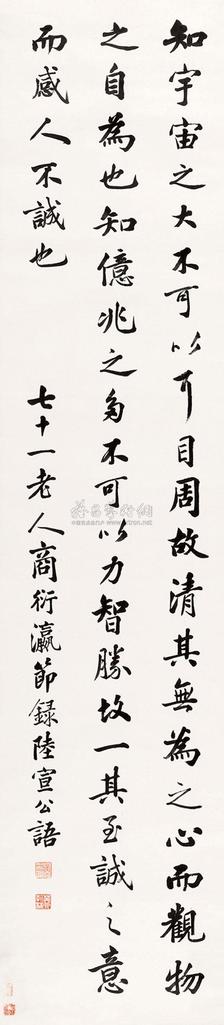 知宇宙之大不可以耳目周故清其無為之心而觀物
之自為也知億兆之多不可以力智勝故一其至誠之意
而感人不誠也
七十一老人商衍瀛節錄陸宣公語